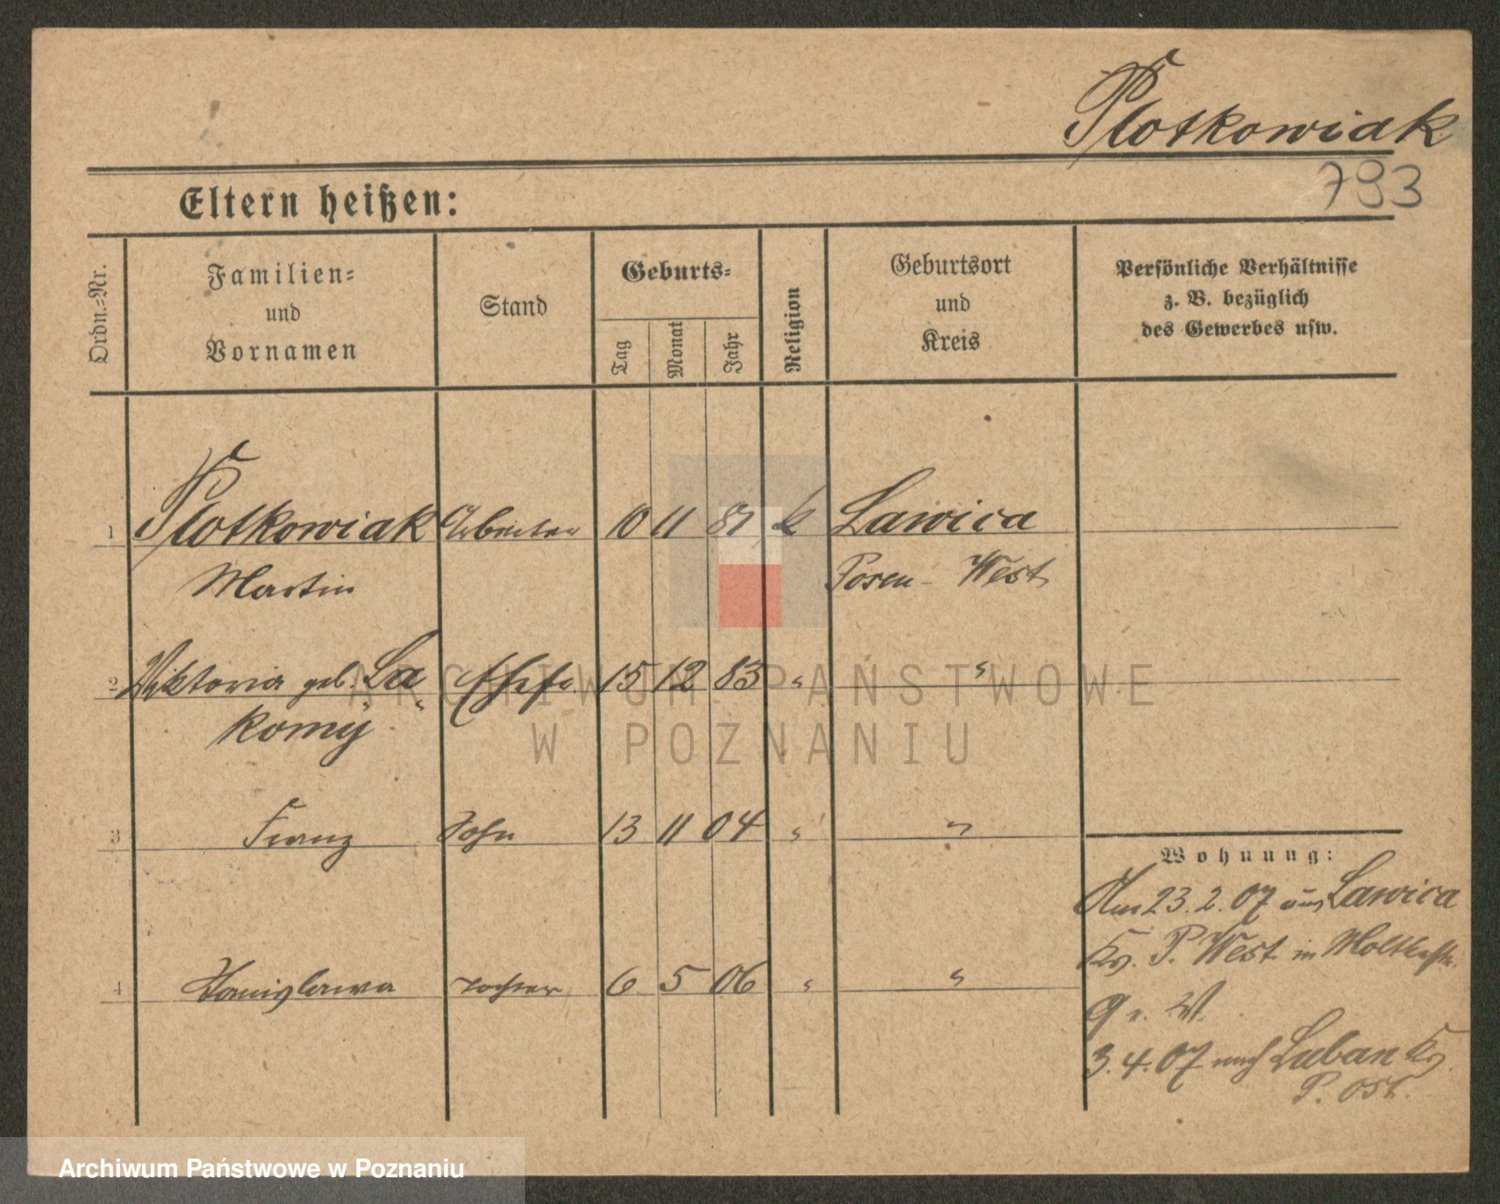 Plotkowiak
793
Eltern heißen:
Ordn.=Nr.
Familien=
und
Vornamen
Stand
Geburts=
Tag
Monat
Jahr
Religion
Geburtsort
und
Kreis
Persönliche Verhältnisse
z. B. bezüglich
des Gewerbes usw.
1 Plotkowiak Arbeiter 10 11 81 k Lawica
Martin Posen - West
2 Viktoria geb. La= Ehefr. 15 12 83 " "
komy
3 Franz Sohn 13 11 04 " "
Wohnung:
Am 23.2.07 aus Lawica
Kr. P. West in Moltkestr.
4 Stanislawa Tochter 6 5 06 " "
9
3.4.07 nach Luban Kr.
P. Ost.
ARCHIWUM PAŃSTWOWE
W POZNANIU
Archiwum Państwowe w Poznaniu